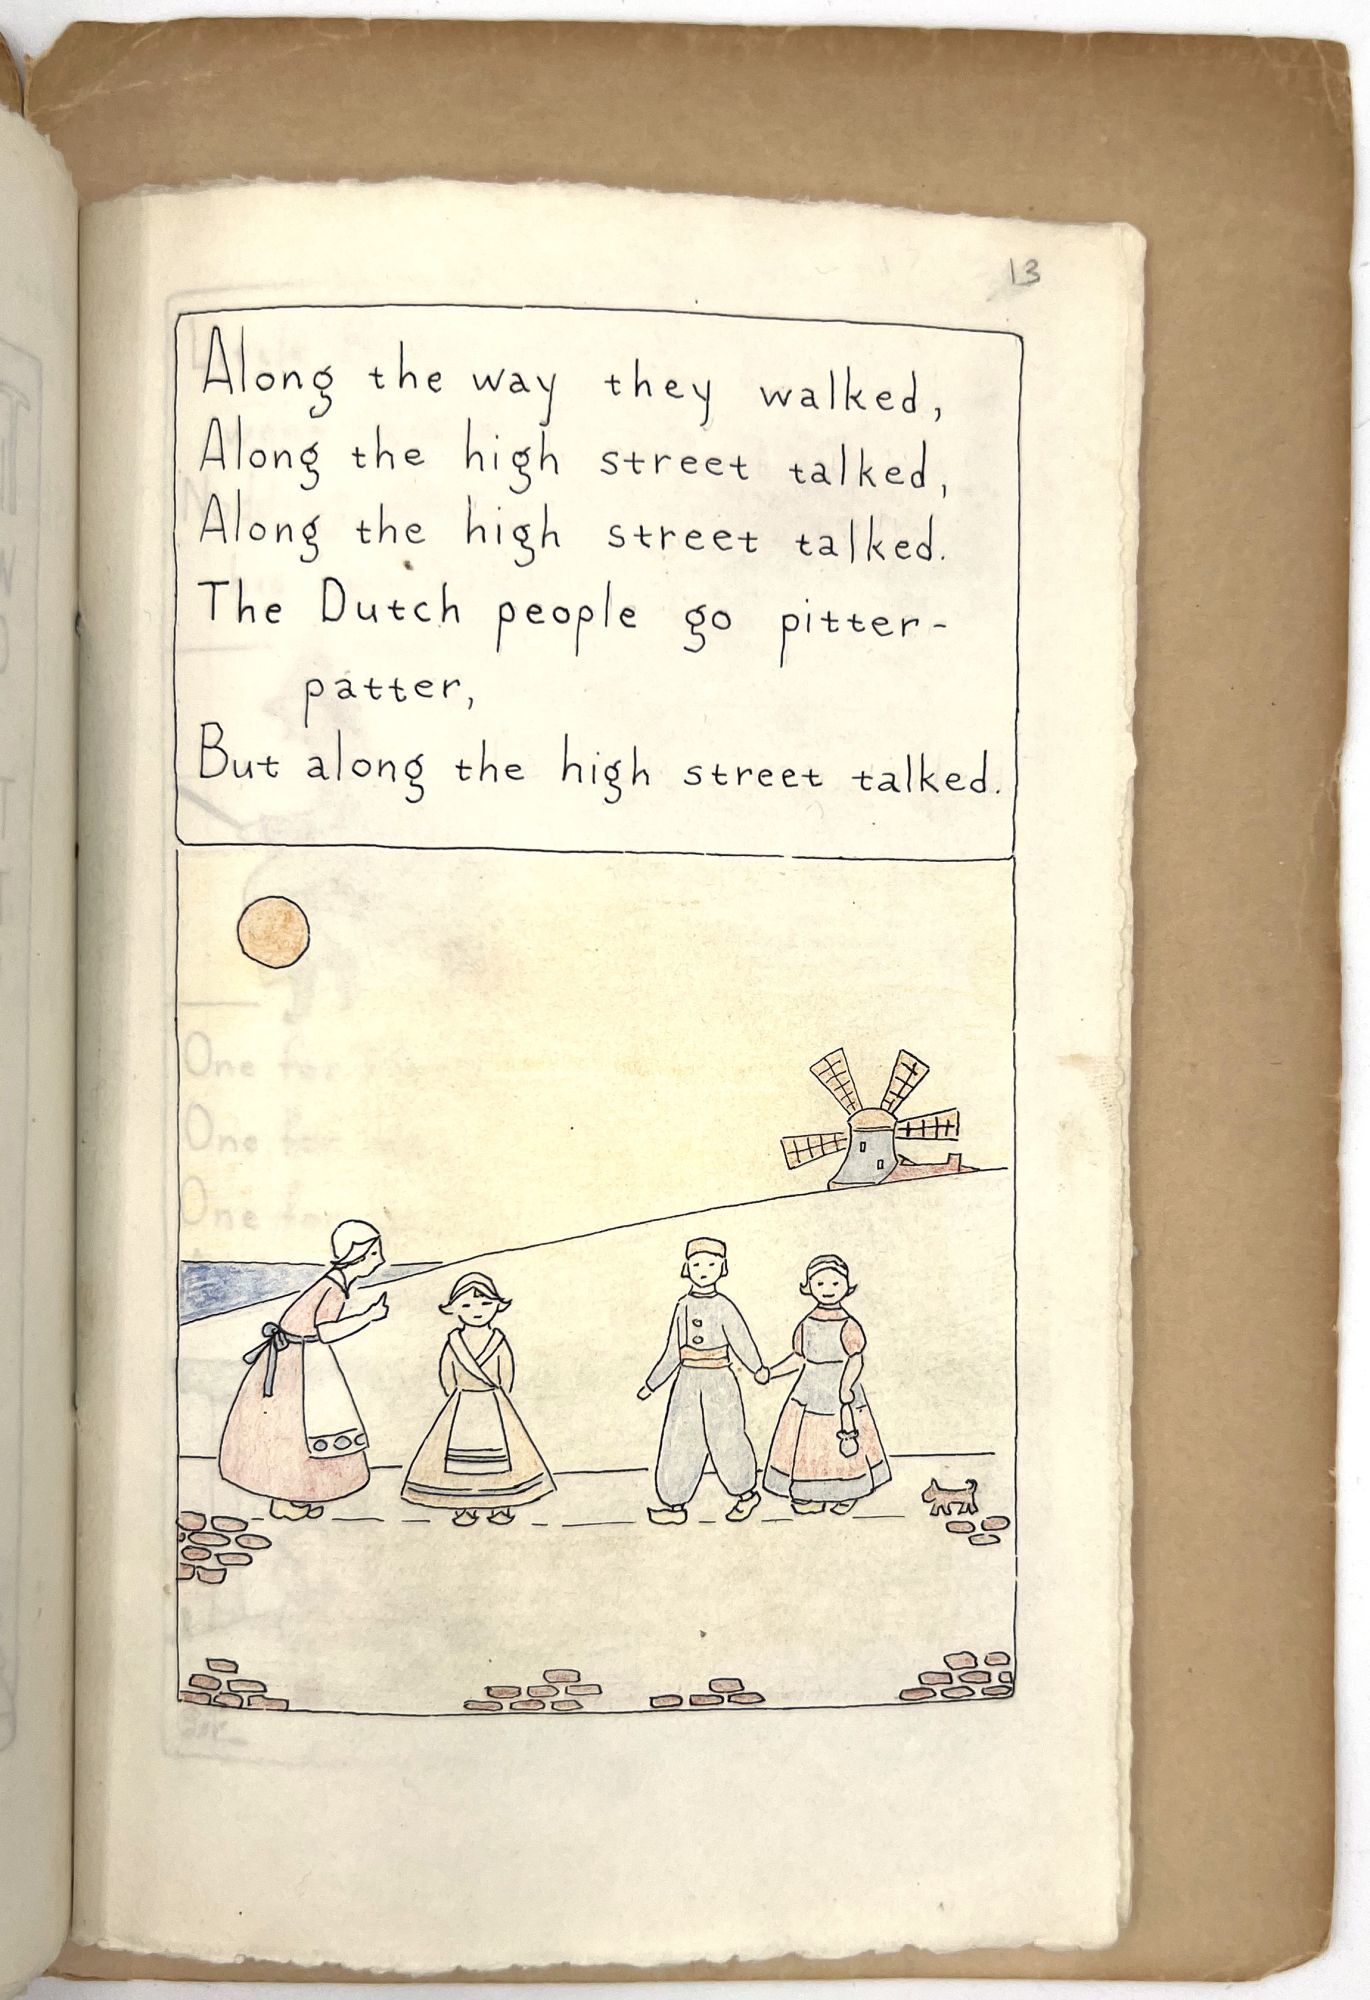 13
Along the way they walked,
Along the high street talked,
Along the high street talked.
The Dutch people go pitter-
patter,
But along the high street talked.
One for
One for
One for